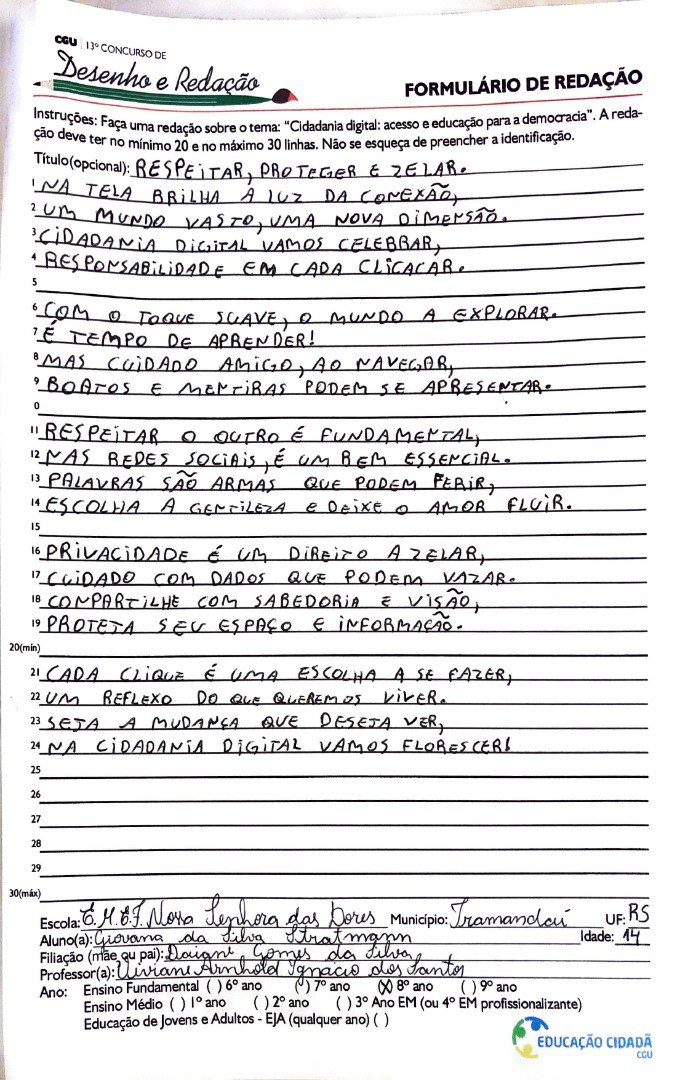 CGU 13º CONCURSO DE
Desenho e Redação
FORMULÁRIO DE REDAÇÃO
Instruções: Faça uma redação sobre o tema: "Cidadania digital: acesso e educação para a democracia". A reda-
ção deve ter no mínimo 20 e no máximo 30 linhas. Não se esqueça de preencher a identificação.
Título(opcional): RESPEITAR, PROTEGER E ZELAR.
1 NA TELA BRILHA A LUZ DA CONEXÃO,
2 UM MUNDO VASTO, UMA NOVA DIMENSÃO.
3 CIDADANIA DIGITAL VAMOS CELEBRAR,
4 RESPONSABILIDADE EM CADA CLICACAR.
5
6 COM O TOQUE SUAVE, O MUNDO A EXPLORAR.
7 É TEMPO DE APRENDER!
8 MAS CUIDADO AMIGO, AO NAVEGAR,
9 BOATOS E MENTIRAS PODEM SE APRESENTAR.
0
11 RESPEITAR O OUTRO É FUNDAMENTAL,
12 NAS REDES SOCIAIS, É UM BEM ESSENCIAL.
13 PALAVRAS SÃO ARMAS QUE PODEM FERIR,
14 ESCOLHA A GENTILEZA E DEIXE O AMOR FLUIR.
15
16 PRIVACIDADE É UM DIREITO A ZELAR,
17 CUIDADO COM DADOS QUE PODEM VAZAR.
18 COMPARTILHE COM SABEDORIA E VISÃO,
19 PROTEJA SEU ESPAÇO E INFORMAÇÃO.
20(mín)
21 CADA CLIQUE É UMA ESCOLHA A SE FAZER,
22 UM REFLEXO DO QUE QUEREMOS VIVER.
23 SEJA A MUDANÇA QUE DESEJA VER,
24 NA CIDADANIA DIGITAL VAMOS FLORESCER!
25
26
27
28
29
30(máx)
Escola: E.M.E.F. Nossa Senhora das Dores Município: Tramandaí UF: RS
Aluno(a): Giovana da Silva Stratmann Idade: 14
Filiação (mãe ou pai): Daiani Gomes da Silva
Professor(a): Viviane Arnhold Ignacio dos Santos
Ano: Ensino Fundamental ( ) 6º ano (\) 7º ano (X) 8º ano ( ) 9º ano
Ensino Médio ( ) 1º ano ( ) 2º ano ( ) 3º Ano EM (ou 4º EM profissionalizante)
Educação de Jovens e Adultos - EJA (qualquer ano) ( )
EDUCAÇÃO CIDADÃ
CGU